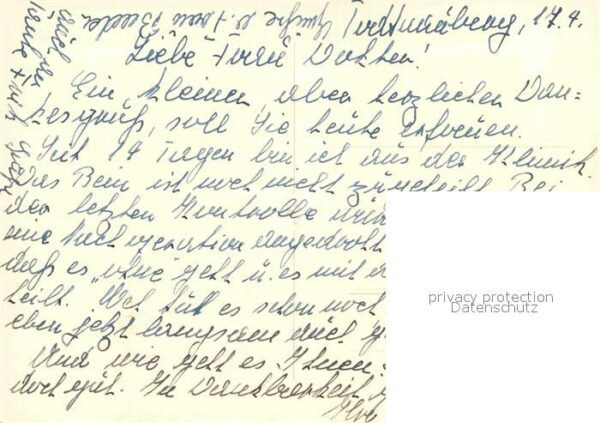 Liebe Frau Dokter!
Ein kleiner, aber herzlicher Dan=
kesgruß, soll Sie heute erfreuen.
Seit 14 Tagen bin ich aus der Klinik.
Das Bein ist noch nicht zugeheilt. Bei
der letzten Kontrolle
eine Nachoperation angedroht
daß es "ohne" geht u. es mit
heilt. Weh tut es schon noch
eben jetzt langsam auch
Und wie geht es Ihnen
doch gut. In Dankbarkeit
privacy protection
Datenschutz